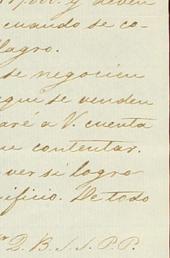 y deben
cuando se co-
lagro.
se negocien
que se venden
aré a V. cuenta
contentar.
ver si logro
ificio. De todo
Q. B. S. S. P. P.